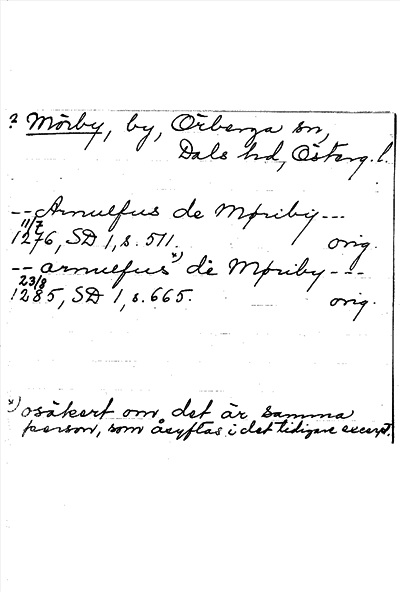 ? Mörby, by, Örberga sn,
Dals hd, Österg. l.
-- Arnulfus de Møriby ---
11/7
1276, SD 1, s. 511. orig.
-- arnulfus *) de Møriby ---
23/8
1285, SD 1, s. 665. orig.
*) osäkert om det är samma
person, som åsyftas i det tidigare excerpt.